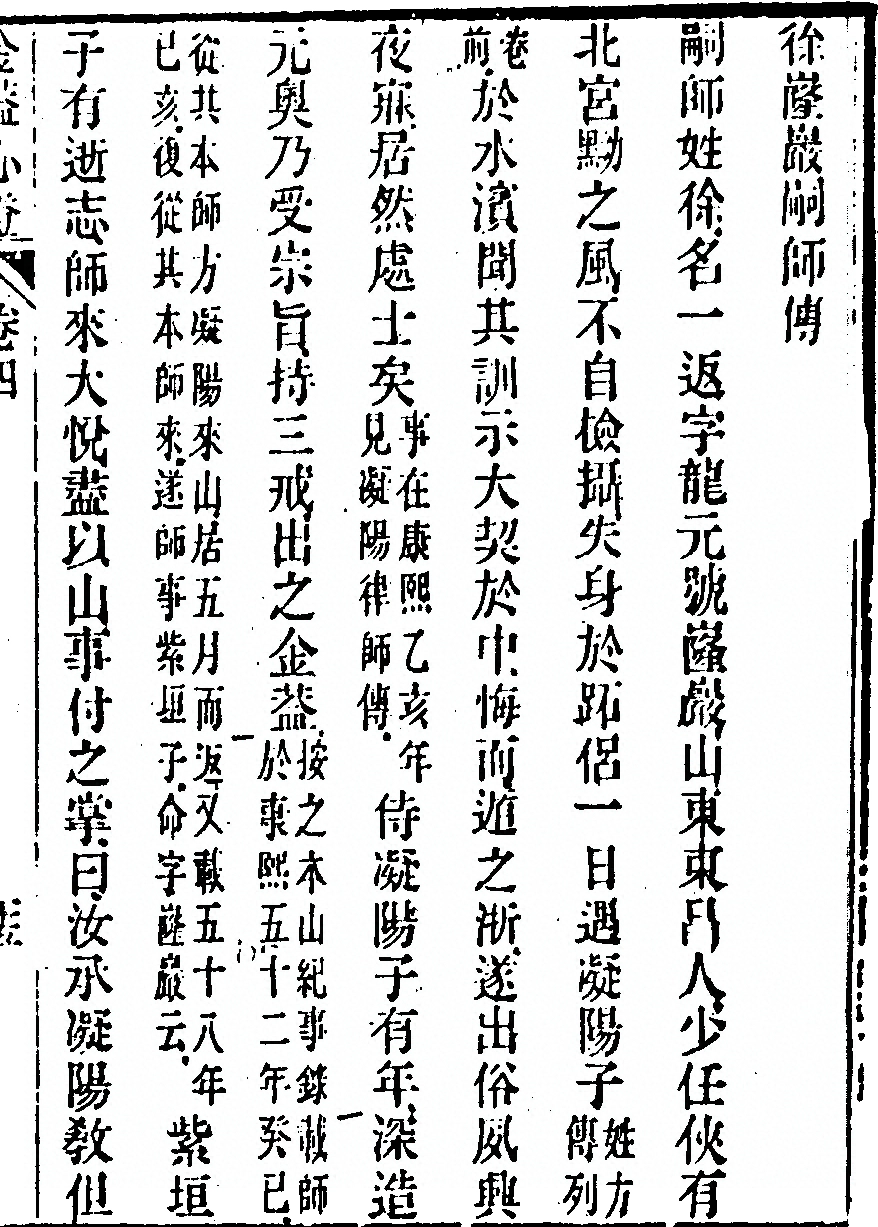 徐嶐巖嗣師傳
嗣師姓徐名一返字龍元號嶐巖山東東呂人少任俠有
北宮黝之風不自檢攝失身於跖侶一日遇凝陽子姓方傳列
卷前於水濱聞其訓示大契於中悔而遁之浙遂出俗夙興
夜寐居然處士矣事在康熙乙亥年見凝陽律師傳侍凝陽子有年深造
元奧乃受宗旨持三戒出之金葢按之本山紀事錄載師於康熙五十二年癸巳
從其本師方凝陽來山居五月而返又載五十八年已亥復從其本師來遂師事紫垣子命字嶐巖云紫垣
子有逝志師來大悅盡以山事付之掌曰汝承凝陽教但
金葢心燈 卷四